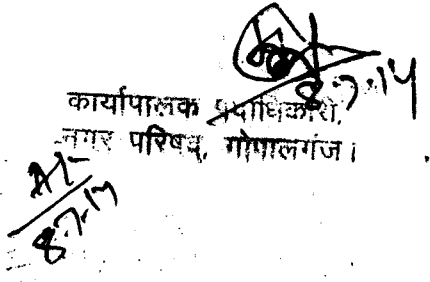 8.7.14
कार्यापालक पदाधिकारी,
नगर परिषद, गोपालगंज।
8.7.14